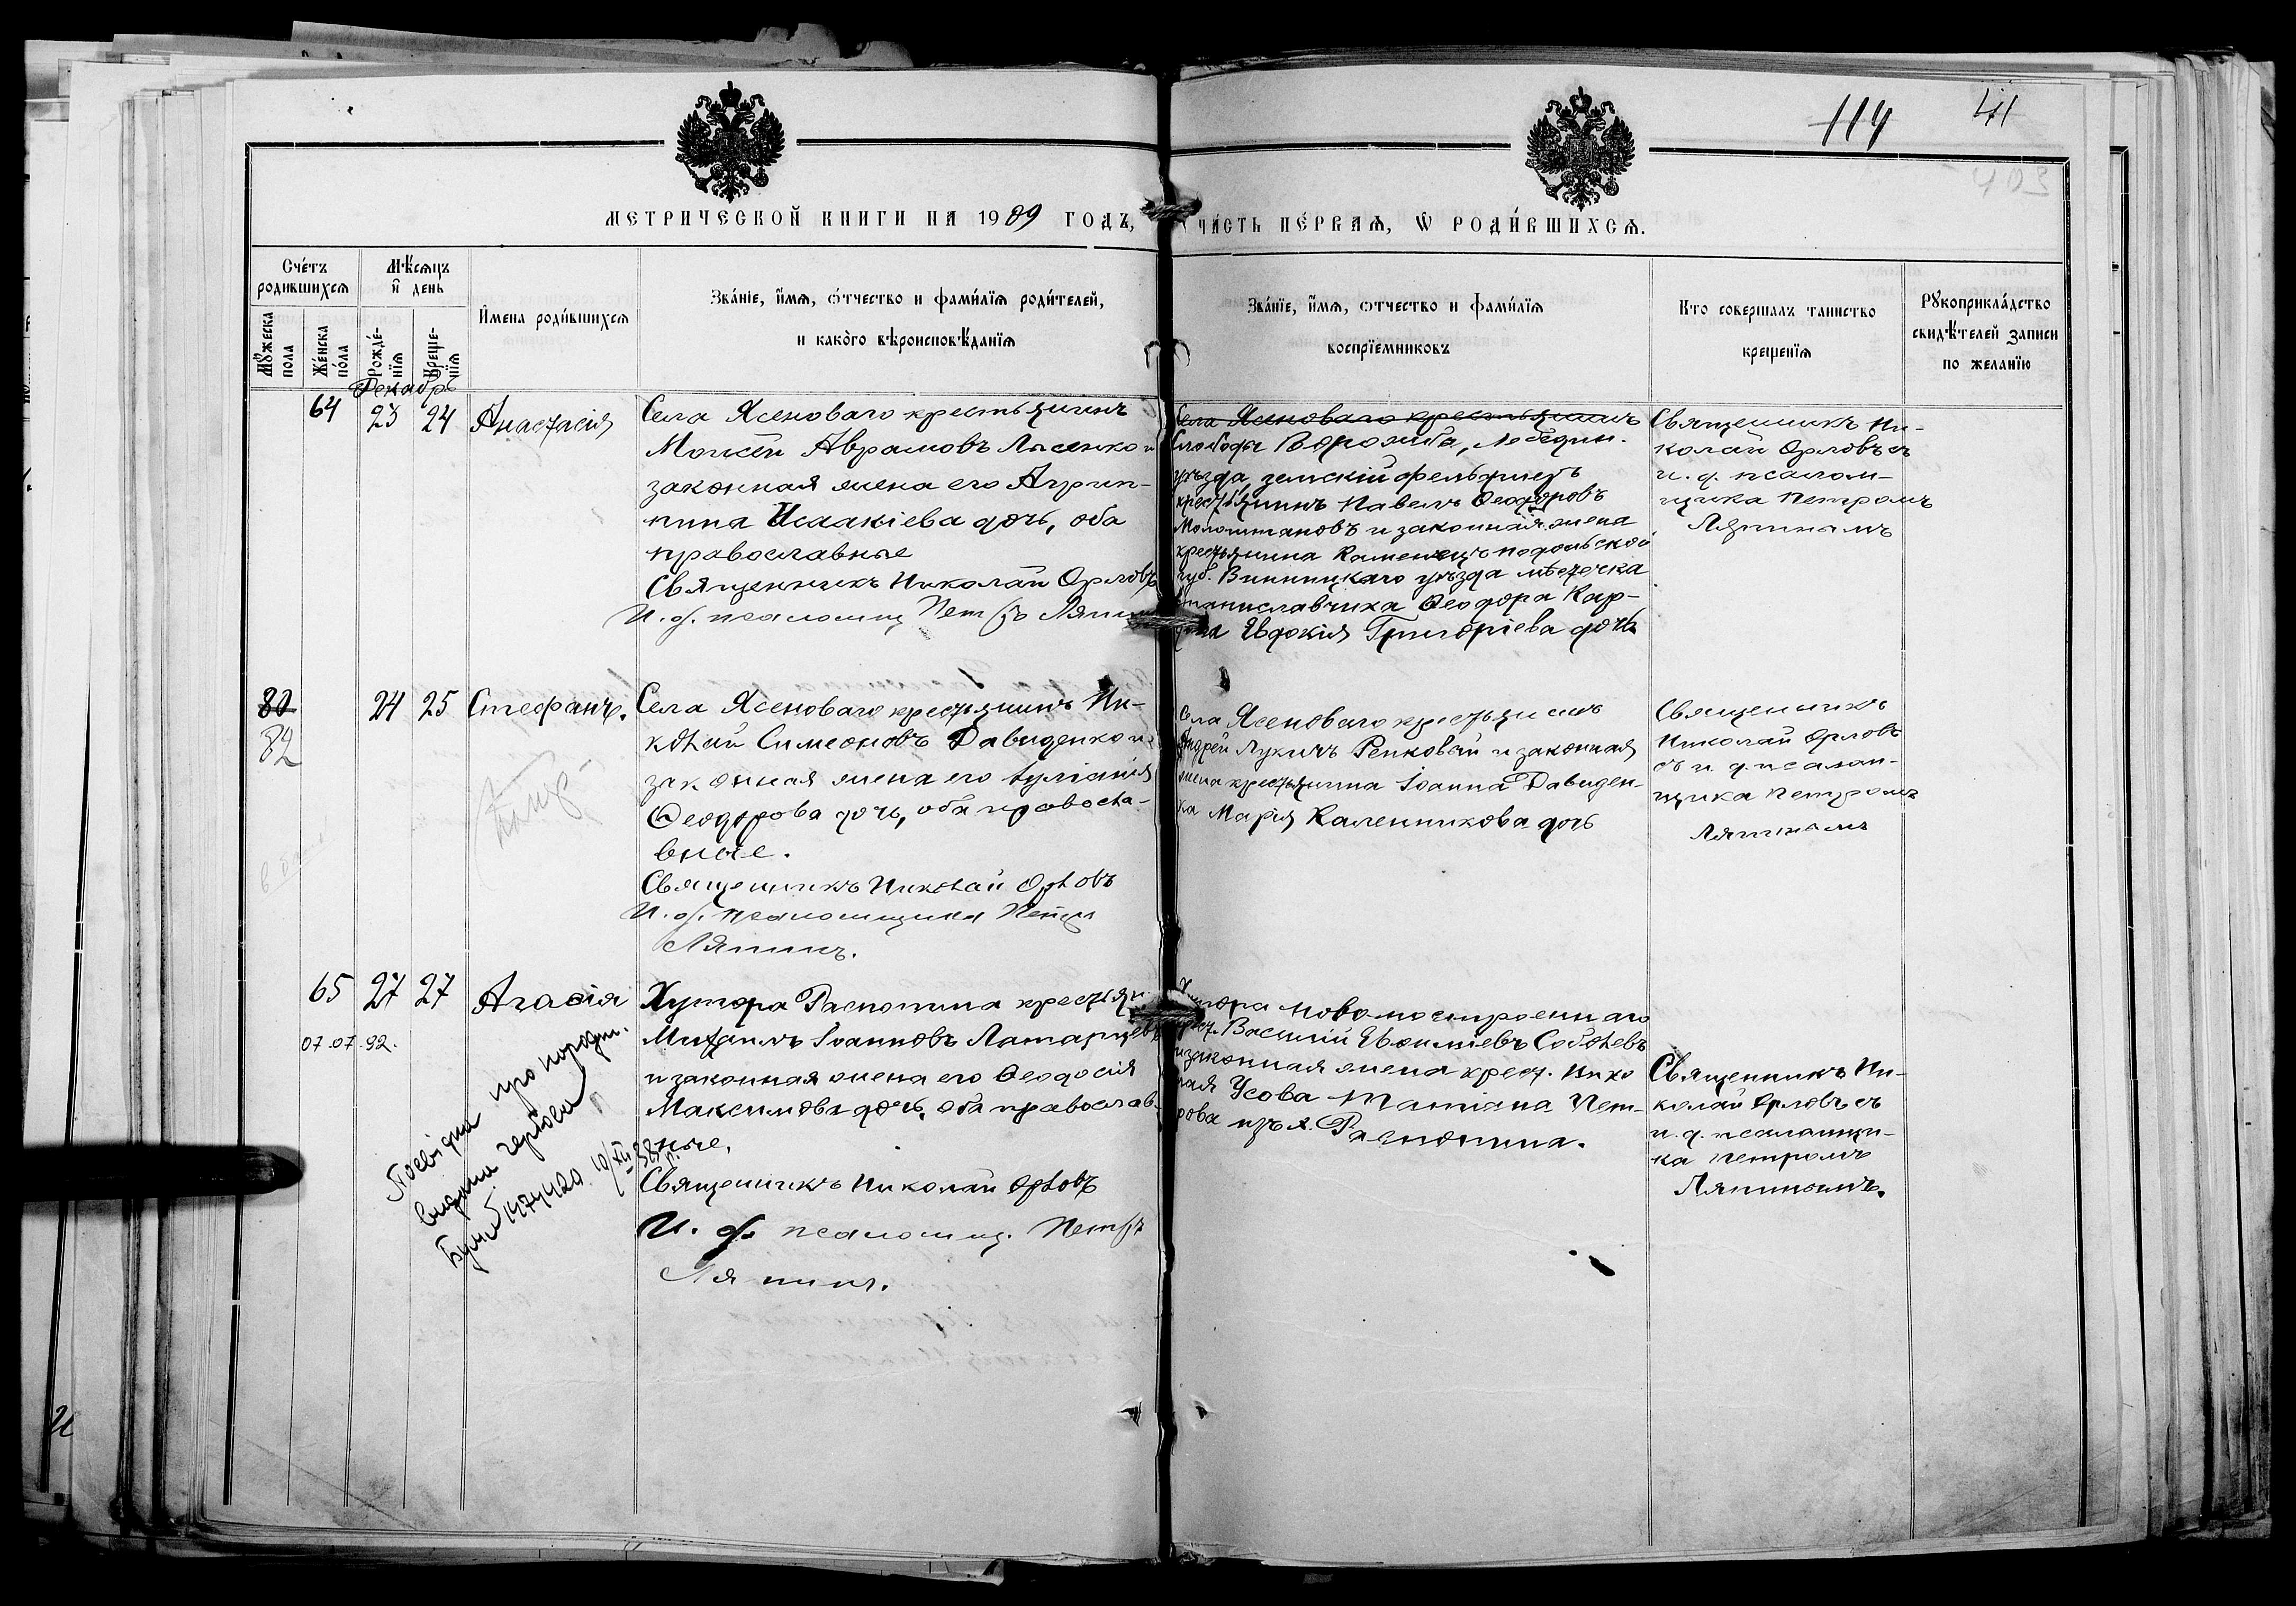 114 41
403
МЕТРИЧЕСКОЙ КНИГИ НА 1909 ГОДЪ,
ЧА́СТЬ ПЕ́РВАѦ, Ѡ РОДИ́ВШИХСѦ.
Сче́тъ родившихсѧ
Мѣ́сѧцъ и҆ день
И҆мена роди́вшихсѧ
Зва́нїе, и҆́мѧ, ѻ҆́тчество и фами́лїѧ роди́телей,
и како́гѡ вѣроисповѣ́данїѧ
Мꙋ́жеска пола
Же́нска по́ла
Рожде́нїѧ
Креще́нїѧ
Зва́нїе, и҆́мѧ, ѻтчество и фами́лїѧ
воспрїемниковъ
Кто совершалъ таинство
крещенїѧ
Рꙋкоприкла́дство
свидѣ́телей записи
по желанїю
Декабрь
64 23 24 Анастасія
Села Ясеноваго крестьянинъ
Моисей Аврамовъ Лысенко и
законная жена его Агрип-
пина Исаакіева дочь, оба
православные
Священникъ Николай Орловъ
И. д. псаломщ Петръ Ляпин
Села Ясеноваго крестьянинъ
Слободы Ворожба, Лебедин.
уѣзда земскій фельдшеръ
крестьянинъ Павелъ Ѳеодоровъ
и законная жена
крестьянина Каменецъ подольской
губ. Винницкаго уѣзда мѣстечка
Станиславчика Ѳеодора Кар-
Евдокія Григоріева дочь
Священникъ Ни-
колай Орловъ съ
и. д. псалом-
щика Петромъ
Ляпинымъ
80 24 25 Стефанъ.
82
Села Ясеноваго крестьянинъ Ни-
колай Симеоновъ Давиденко и
законная жена его Іуліанія
Ѳеодорова дочь, оба правосла-
вные.
Священникъ Николай Орловъ
И. д. псаломщика Петръ
Ляпинъ.
Села Ясеноваго крестьянинъ
Андрей Лукичъ Репковый и законная
жена крестьянина Іоанна Давиден-
ка Марія Каленникова дочь
Священникъ
Николай Орловъ
съ и. д. псалом-
щика Петромъ
Ляпинымъ
65 27 27 Агаѳія
07.07.92.
Хутора Распопина крестьян.
Михаилъ Іоанновъ Латарцевъ
и законная жена его Ѳеодосія
Максимова дочь, оба православ-
ные,
Священникъ Николай Орловъ
И. д. псаломщ. Петръ
Ляпинъ.
Хутора новопостроеннаго
крест. Василій Евоиміевъ Соболевъ
и законная жена крест. Нико
лая Усова Татіана Пет-
рова изъ х. Распопина.
Священникъ Ни-
колай Орловъ съ
и. д. псаломщи-
ка Петромъ
Ляпинымъ.
Посвідка про народж.
видана гербова
10/XII 38 р.